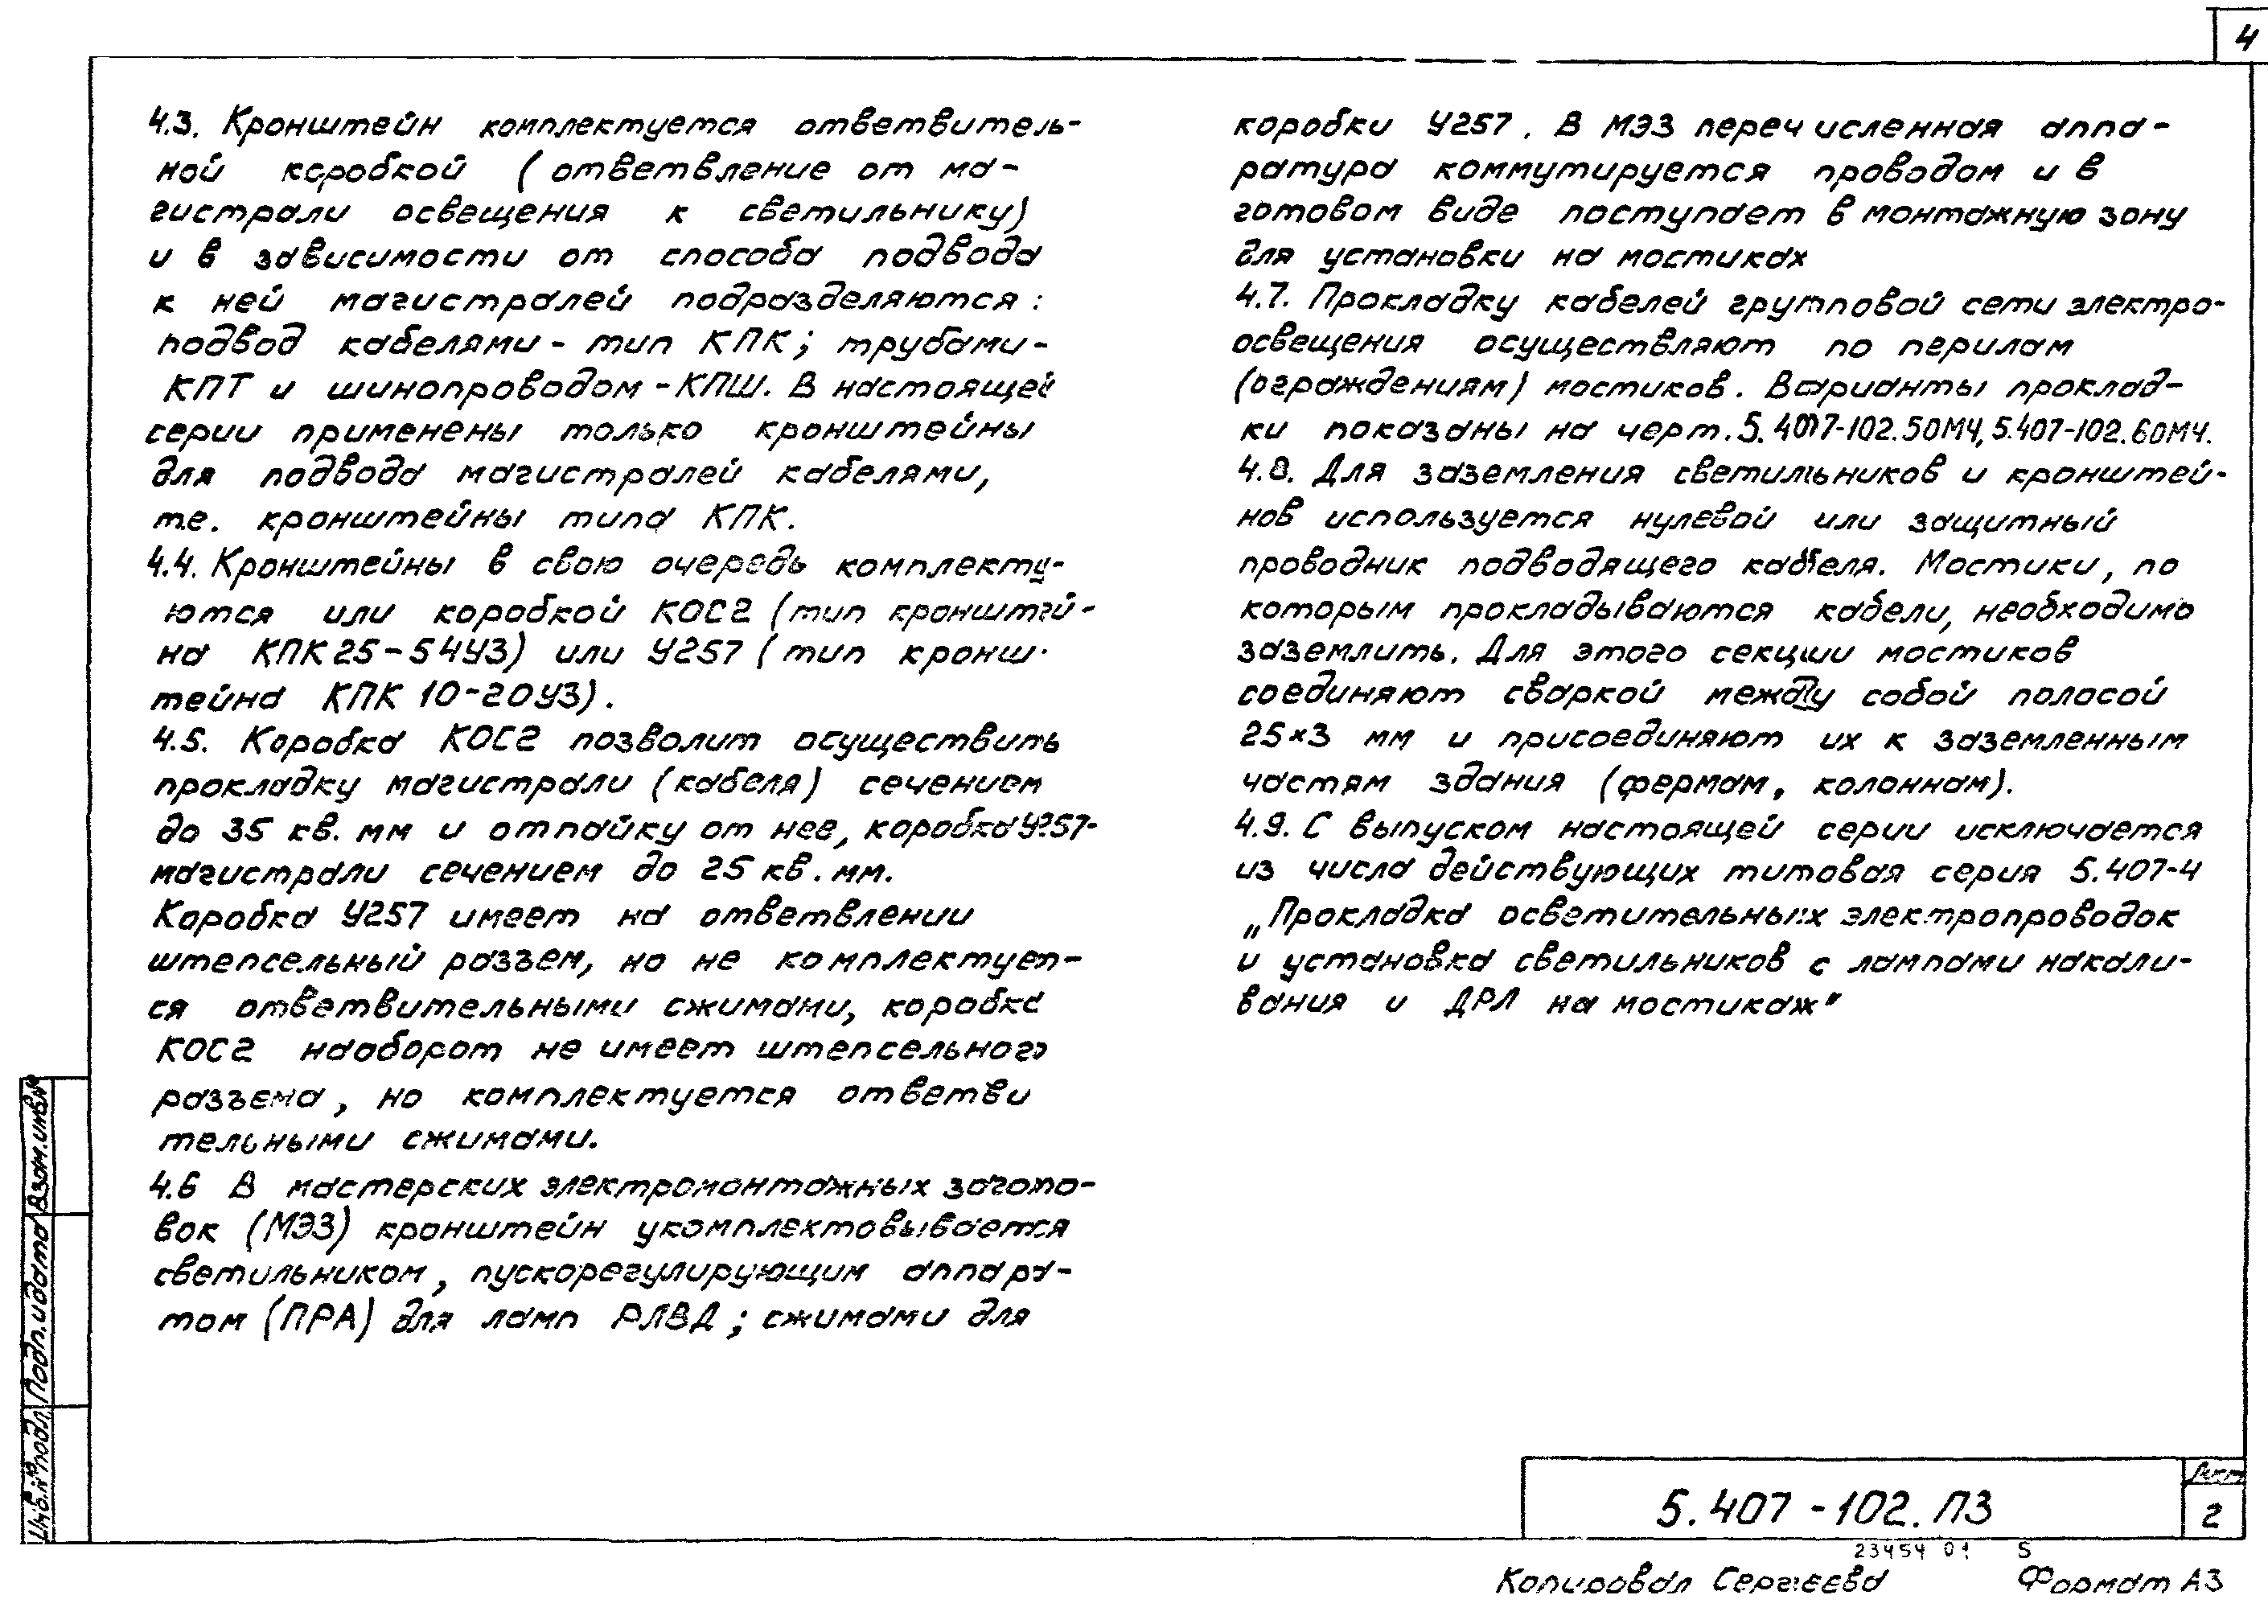 4
4.3. Кронштейн комплектуется ответвитель-
ной коробкой (ответвление от ма-
гистрали освещения к светильнику)
и в зависимости от способа подвода
к ней магистралей подразделяются:
подвод кабелями - тип КПК; трубами-
КПТ и шинопроводом - КПШ. В настоящей
серии применены только кронштейны
для подвода магистралей кабелями,
т.е. кронштейны типа КПК.
4.4. Кронштейны в свою очередь комплекту-
ются или коробкой КОС2 (тип кронштей-
на КПК25-54У3) или У257 (тип кронш-
тейна КПК 10-20У3).
4.5. Коробка КОС2 позволит осуществить
прокладку магистрали (кабеля) сечением
до 35 кв. мм и отпайку от нее, коробка У257-
магистрали сечением до 25 кв. мм.
Коробка У257 имеет на ответвлении
штепсельный разъем, но не комплектует-
ся ответвительными сжимами, коробка
КОС2 наоборот не имеет штепсельного
разъема, но комплектуется ответви
тельными сжимами.
4.6 В мастерских электромонтажных загото-
вок (МЭЗ) кронштейн укомплектовывается
светильником, пускорегулирующим аппара-
том (ПРА) для ламп РЛВД; сжимами для
коробки У257. В МЭЗ перечисленная аппа-
ратура коммутируется проводом и в
готовом виде поступает в монтажную зону
для установки на мостиках
4.7. Прокладку кабелей групповой сети электро-
освещения осуществляют по перилам
(ограждениям) мостиков. Варианты проклад-
ки показаны на черт. 5.407-102.50МЧ, 5.407-102.60МЧ.
4.8. Для заземления светильников и кронштей-
нов используется нулевой или защитный
проводник подводящего кабеля. Мостики, по
которым прокладываются кабели, необходимо
заземлить. Для этого секции мостиков
соединяют сваркой между собой полосой
25×3 мм и присоединяют их к заземленным
частям здания (фермам, колоннам).
4.9. С выпуском настоящей серии исключается
из числа действующих типовая серия 5.407-4
„Прокладка осветительных электропроводок
и установка светильников с лампами накали-
вания и ДРЛ на мостиках"
Взам. инв. №
Подп. и дата
Инв. № подл.
5.407-102.ПЗ
Лист
2
23454 01 5
Копировал Сергеева Формат А3